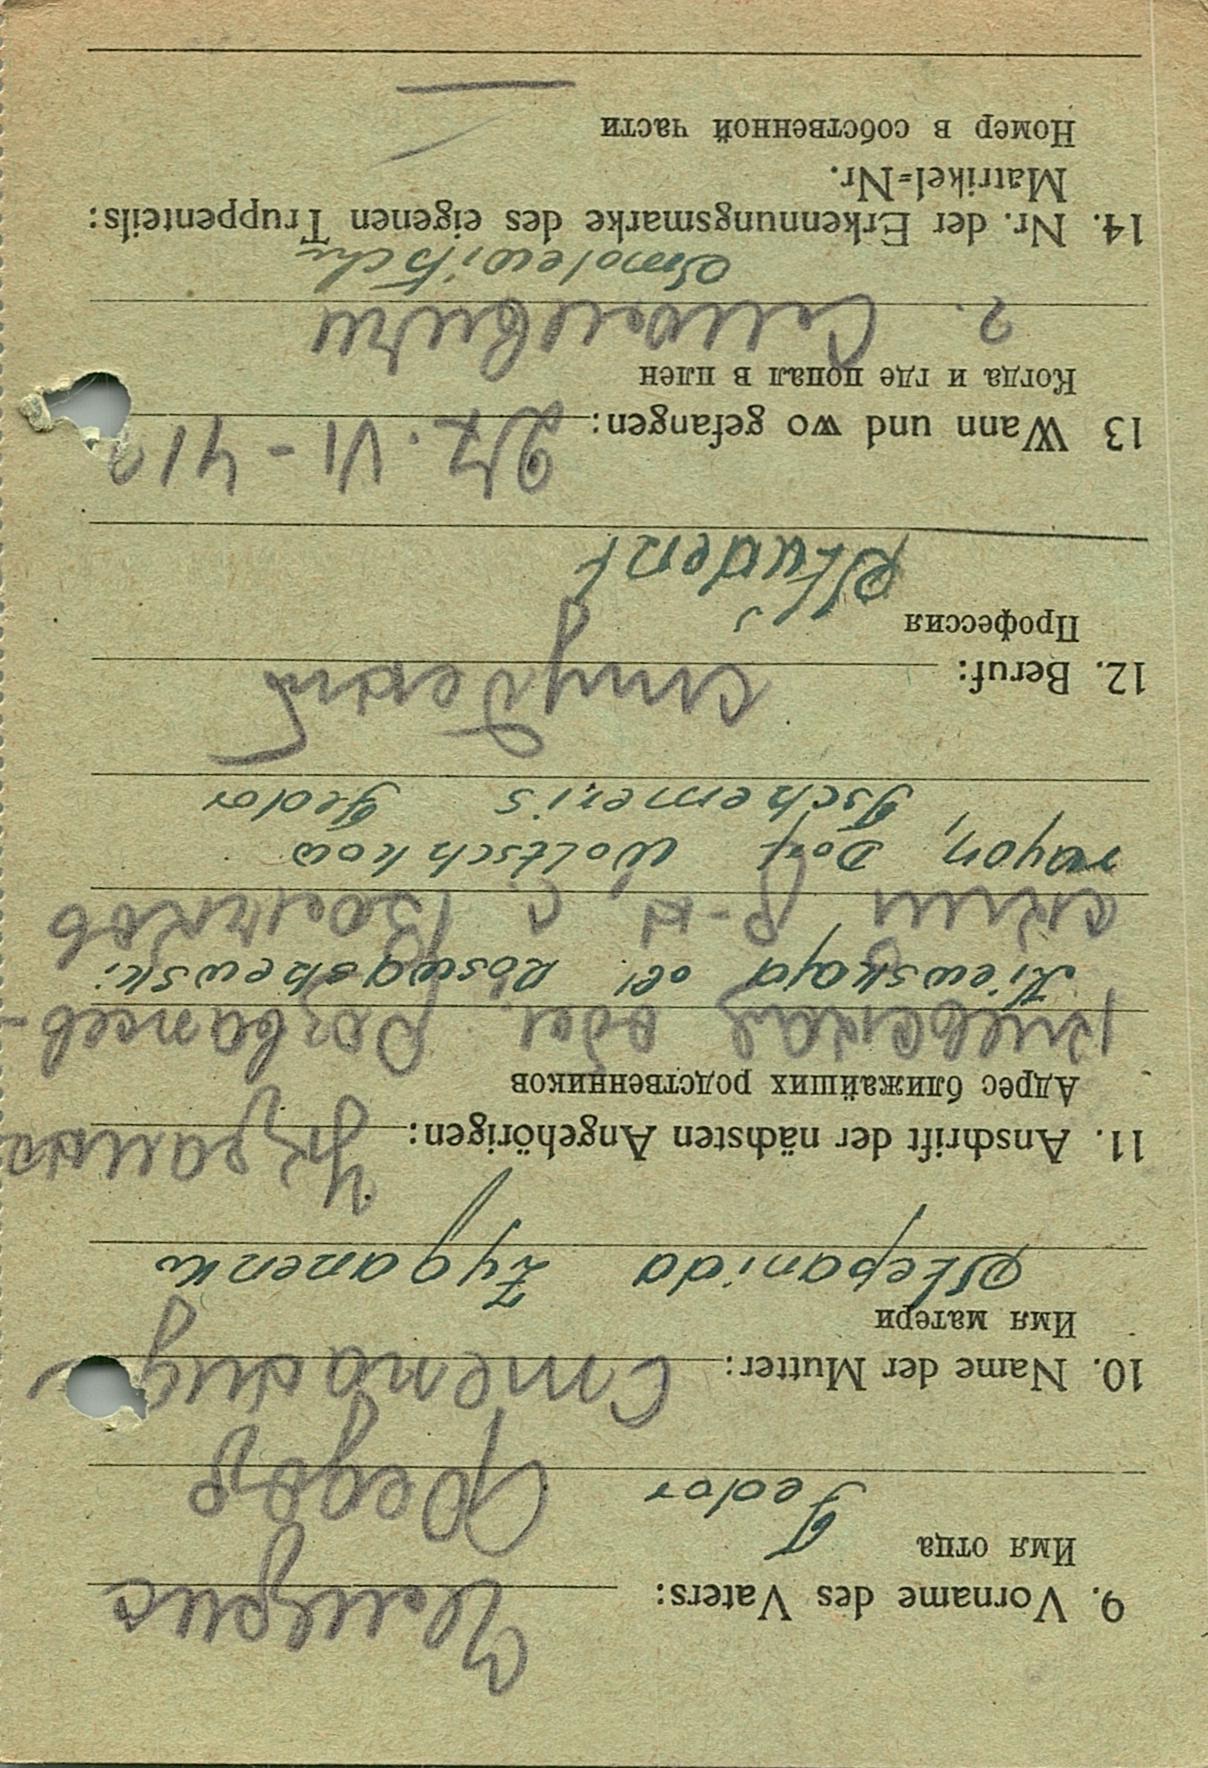 Чемерис
9. Vorname des Vaters:
Имя отца
Федор
Fedor
10. Name der Mutter: Степанида
Имя матери
Stepanida Zyganenk
11. Anschrift der nächsten Angehörigen: Украина
Адрес ближайших родственников
Киевская обл. Розважев-
Kiewskaja obl. Roswashewski
ский р-н с. Волчков
rayon, Dorf Woltschkow
Tschemeris Fedor
12. Beruf: студент
Профессия
Student
13 Wann und wo gefangen: 27. VI - 41г
Когда и где попал в плен
г. Смолевичи
Smolewitschi
14. Nr. der Erkennungsmarke des eigenen Truppenteils:
Matrikel=Nr.
Номер в собственной части